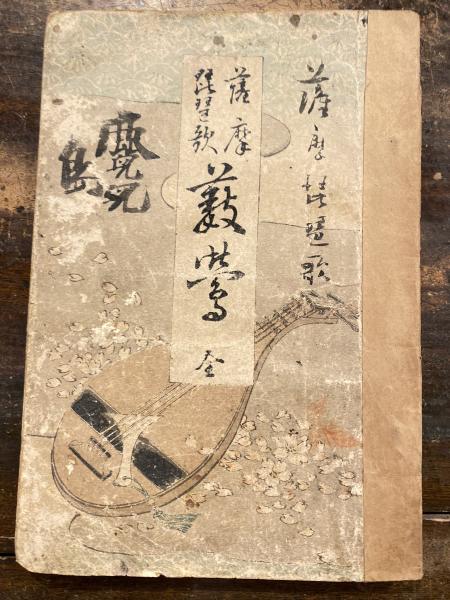 薩摩琵琶歌
薩摩
琵琶歌
藪鶯 全
鹿児
島